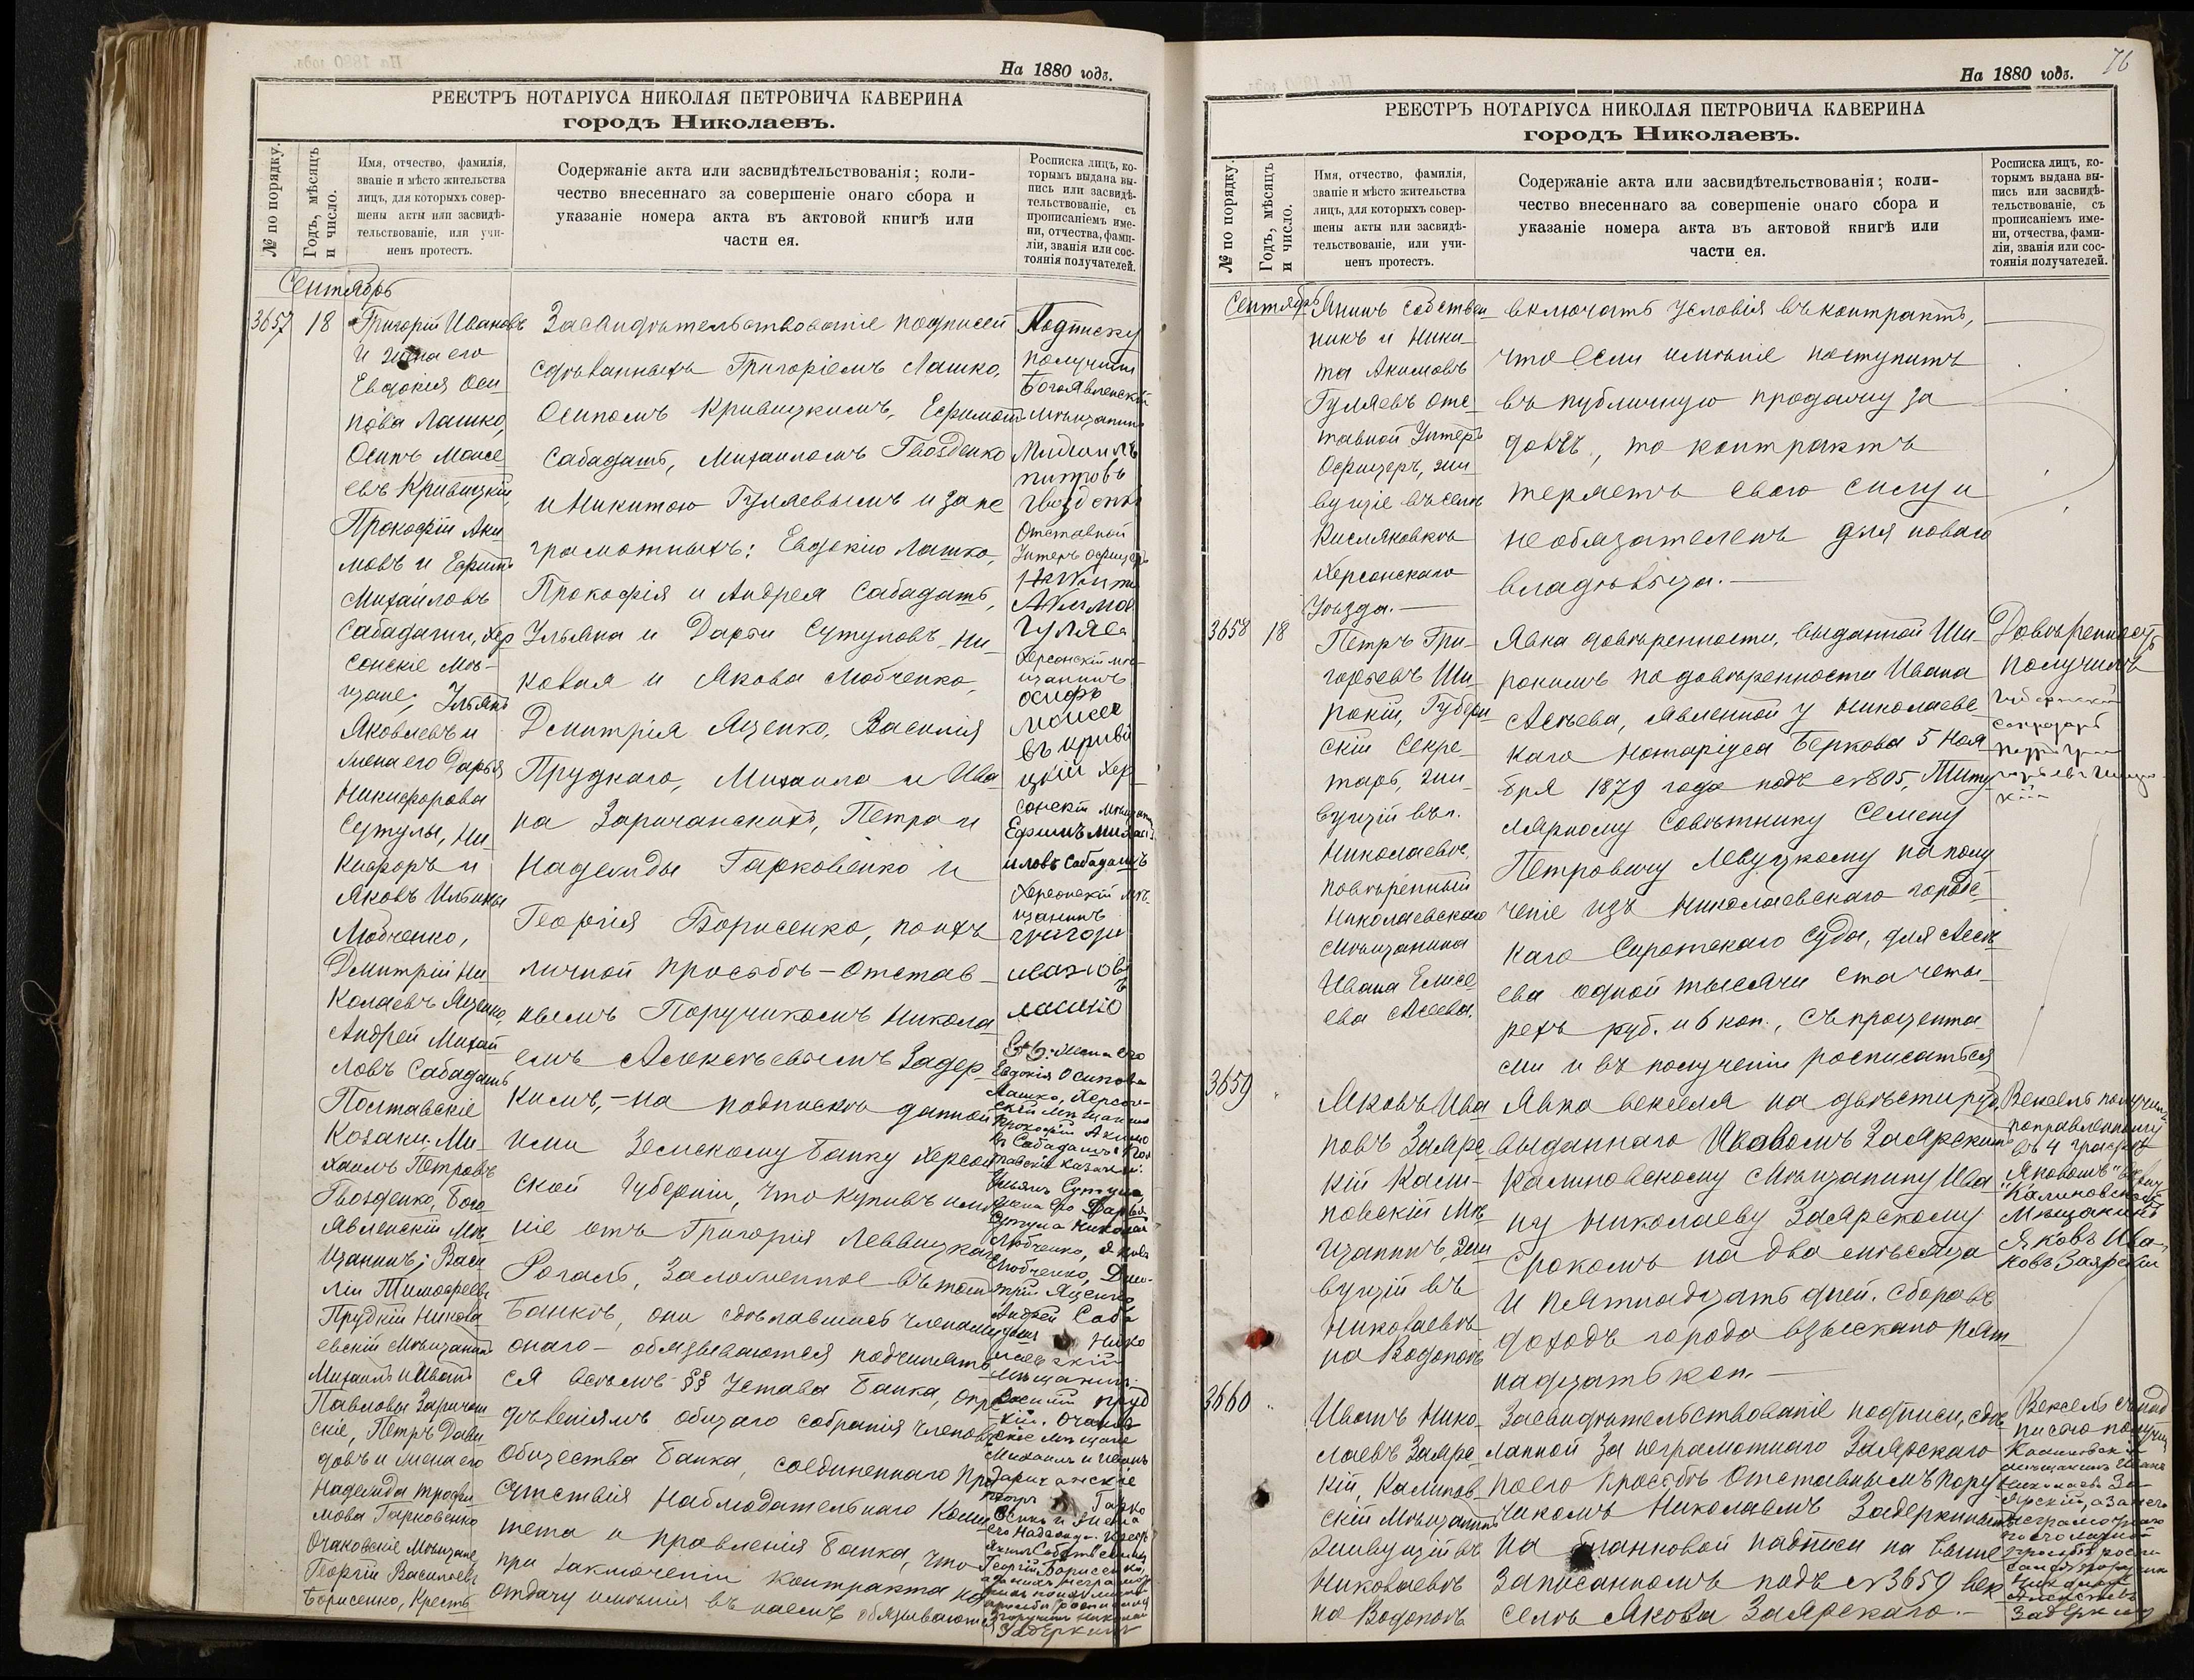 На 1880 годъ.
РЕЕСТРЪ НОТАРІУСА НИКОЛАЯ ПЕТРОВИЧА КАВЕРИНА
городъ Николаевъ.
№ по порядку.
Годъ, мѣсяцъ
и число.
Имя, отчество, фамилія,
званіе и мѣсто жительства
лицъ, для которыхъ совер-
шены акты или засвидѣ-
тельствованіе, или учи-
ненъ протестъ.
Содержаніе акта или засвидѣтельствованія; коли-
чество внесеннаго за совершеніе онаго сбора и
указаніе номера акта въ актовой книгѣ или
части ея.
Росписка лицъ, ко-
торымъ выдана вы-
пись или засвидѣ-
тельствованіе, съ
прописаніемъ име-
ни, отчества, фами-
ліи, званія или сос-
тоянія получателей.
Сентябрь
3657
18
Григорій Ивановъ
и жена его
Евдокія Оси
пова Лашко,
Осипъ Моисе
евъ Кривицкій,
Прокофій Аки
мовъ и Ефимъ
Михайловъ
Сабадаши, Хер
сонскіе мѣ-
щане, Ульянъ
Яковлевъ и
жена его Дарья
Никифорова
Сутулы, Ни
кифоръ и
Яковъ Ильины
Любченко,
Дмитрій Ни
колаевъ Яценко,
Андрей Михай
ловъ Сабадашъ
Полтавскіе
Козаки. Ми-
хаилъ Петровъ
Гвозденко, Бого
явленскій мѣ
щанинъ; Васи
лій Тимофеевъ
Прудкій Никола
евскій мѣщанинъ
Михаилъ и Иванъ
Павловы Заричан
скіе, Петръ Дави
довъ и жена его
Надежда Трофи
мова Гарковенко
Очаковскіе мѣщане,
Георгій Васильевъ
Борисенко, Кресть
Засвидѣтельствованіе подписей
сдѣланныхъ Григоріемъ Лашко,
Осипомъ Кривицкимъ, Ефимомъ
Сабадашъ, Михаиломъ Гвозденко
и Никитою Гуляевымъ и за не
грамотныхъ: Евдокію Лашко,
Прокофія и Андрея Сабадашъ,
Ульяна и Дарьи Сутуловъ, Ни-
ковая и Якова Любченко,
Дмитрія Яценко, Василія
Прудкаго, Михаила и Ива
на Заричанскихъ, Петра и
Надежды Гарковенко и
Георгія Борисенко, по ихъ
личной просьбѣ – Отстав-
нымъ Поручикомъ Никола
емъ Алексѣевымъ Задер
кимъ, – на подпискѣ данной
ими Земскому банку Херсон
ской губерніи, что купивъ имѣ
ніе отъ Григорія Леввицкаго
Рогаль, заложенное въ томъ
Банкѣ, они сдѣлавшись членами
онаго – обязываются подчинять
ся всѣмъ §§ Устава банка, опре
дѣленіямъ общаго собранія членовъ
Общества банка, соединеннаго при
сутствія наблюдательнаго Коми
тета и правленія банка, что
при заключеніи контракта на
отдачу имѣнія въ наемъ обязываются
Подписку
получили
Богоявленскій
мѣщанинъ
Михаилъ
питровъ
Гвозденко
Отставной
Унтеръ офицеръ
Никита
Акимов
Гуляев
Херсонскій мѣ-
щанинъ
осифъ
Моисее
въ криви
цкій Хер-
сонскій мѣщанин
Ефимъ Михай
иловъ Сабадашъ
Херсонскій мѣ-
щанинъ
григори
ивановъ
лашко
жена его
Евдокія Осипова
Лашко, Херсон-
скій мѣщанинъ
Прокофій Акимо
въ Сабадашъ, Пол
тавскіе казаки:
Ульянъ Сутула,
жена его Дарья
Сутула Никифоръ
Любченко, Яковъ
Любченко, Дми-
трій Яценко
Андрей Саба
дашъ, Нико
лаевскій
мѣщанинъ
Василій Пруд
кій. Очаков
скіе мѣщане
Михаилъ и Иванъ
Заричанскіе
Петръ Гарко
его Надежда
Георгій Борисенко,
Поручикъ Николай
Задеркинъ
На 1880 годъ.
76
РЕЕСТРЪ НОТАРІУСА НИКОЛАЯ ПЕТРОВИЧА КАВЕРИНА
городъ Николаевъ.
№ по порядку.
Годъ, мѣсяцъ
и число.
Имя, отчество, фамилія,
званіе и мѣсто жительства
лицъ, для которыхъ совер-
шены акты или засвидѣ-
тельствованіе, или учи-
ненъ протестъ.
Содержаніе акта или засвидѣтельствованія; коли-
чество внесеннаго за совершеніе онаго сбора и
указаніе номера акта въ актовой книгѣ или
части ея.
Росписка лицъ, ко-
торымъ выдана вы-
пись или засвидѣ-
тельствованіе, съ
прописаніемъ име-
ни, отчества, фами-
ліи, званія или сос-
тоянія получателей.
Сентябрь
янинъ собствен
никъ и Ники
та Акимовъ
Гуляевъ Отс
тавной Унтеръ
Офицеръ, жи
вущіе въ селѣ
Кисляковкѣ
Херсонскаго
Уѣзда. —
включать условія въ контрактъ,
что если имѣніе поступитъ
въ публичную продажу за
долгъ, то контрактъ
теряетъ свою силу и
необязателенъ для новаго
владѣльца. —
3658
18
Петръ Гри-
горьевъ Ши-
рокій, Губерн
скій Секре-
тарь, жи-
вущій въ г.
Николаевѣ,
повѣренный
Николаевскаго
мѣщанина
Ивана Елисе
ева Асеева.
Явка довѣренности, выданной Ши-
рокимъ по довѣренности Ивана
Асѣева, явленной у Николаевс
каго нотаріуса Беркова 5 Ноя
бря 1879 года подъ №805, Титу
лярному Совѣтнику Семену
Петровичу Левуцкому на полу
ченіе изъ Николаевскаго городс
каго Сиротскаго Суда, для Асѣ
ева одной тысячи ста четы
рехъ руб. и 6 коп., съ процента
ми и въ полученіи росписаться
Довѣренность
получилъ
Губернскій
секретарь
3659
"
Яковъ Ива
новъ Заярс
кій Кали-
новскій мѣ
щанинъ, жи
вущій въ
Николаевѣ
на Водопоѣ
Явка векселя на двѣсти руб.
выданнаго Иваномъ Заярскимъ
Калиновскому мѣщанину Ива
ну Николаеву Заярскому
срокомъ на два мѣсяца
и пятнадцать дней. Сбора въ
доходъ города взыскано пят
надцать коп. —
Вексель получилъ
поправленному
въ 4 графѣ
"Яковомъ" вѣрить
Калиновскій
Мѣщанинъ
Яковъ Ива-
новъ Заярскій
3660
"
Иванъ Нико
лаевъ Заярс
кій, Калинов
скій мѣщанинъ
живущій въ
Николаевѣ
на Водопоѣ
Засвидѣтельствованіе подписи, сдѣ
ланной за неграмотнаго Заярскаго
по его просьбѣ Отставнымъ Пору
чикомъ Николаемъ Задеркинымъ
на бланковой надписи на выше
записанномъ подъ №3659 век
селѣ Якова Заярскаго. —
Вексель съ над
писью получилъ
Калиновскій
мѣщанинъ Иванъ
Николаевъ За
ярскій, а за него
неграмотнаго
по его личной
просьбѣ роспи
Николай
Алексѣевъ
Задеркинъ